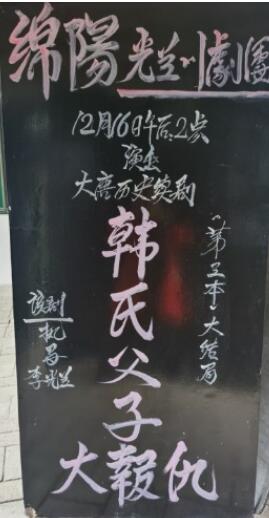 绵陽光兰川劇團
12月16日午后2点
演出
大唐历史续剧
韩氏父子
大報仇
《第三本·大结局
该剧
执导
李光兰